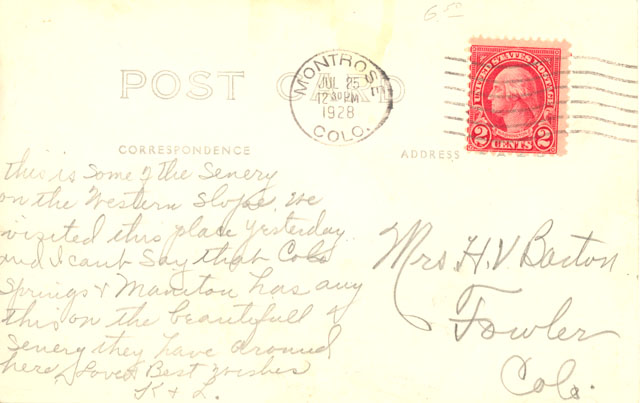 6.50
POST CARD
MONTROSE
JUL 25
12 30 PM
1928
COLO.
UNITED STATES POSTAGE
2 CENTS 2
CORRESPONDENCE
ADDRESS
this is some of the Senery
on the Western Slope. We
visited this place yesterday
and I cant Say that Colo
Springs & Maniton has any
this on the beautifull
Senery they have around
here, Love & Best wishes
K & L.
Mrs H. V. Barton
Fowler
Colo.